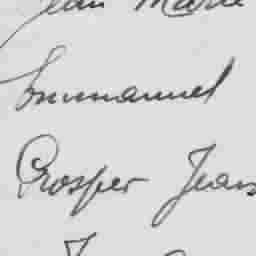 Jean Marie
Emmanuel
Prosper Jean